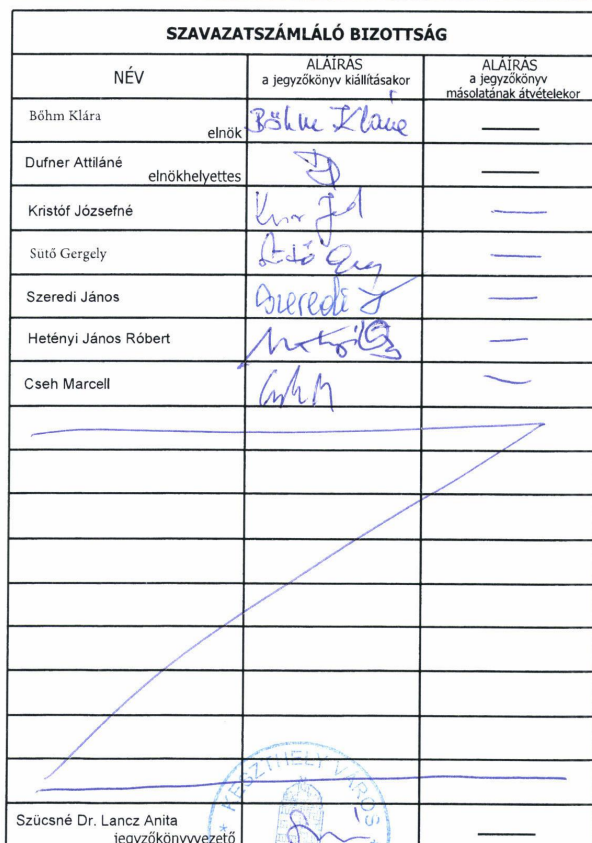 SZAVAZATSZÁMLÁLÓ BIZOTTSÁG
NÉV
ALÁÍRÁS
a jegyzőkönyv kiállításakor
ALÁÍRÁS
a jegyzőkönyv
másolatának átvételekor
Bőhm Klára
elnök
Bőhm Klára
Dufner Attiláné
elnökhelyettes
Kristóf Józsefné
Sütő Gergely
Szeredi János
Szeredi J
Hetényi János Róbert
Cseh Marcell
Cseh M
KESZTHELY VÁROS
Szücsné Dr. Lancz Anita
jegyzőkönyvvezető